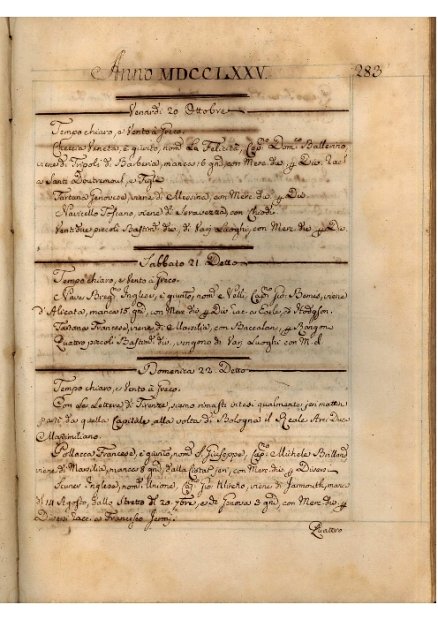 Anno MDCCLXXV. 283
Venerdì 20 Ottobre
Tempo chiaro, e Vento à Greco.
Checcia Veneta, è giunto, nom.ª La Felicità, Cap.º Dom.º Ballerino,
viene di Tripoli di Barberia, manca 16 gni, con Merc. die, p Div. Racl
a Santi Doutremoul, e Figli
Tartana Genovese, viene di Messina, con Merc. die p Div.
Navicello Toscano, viene di Seravezza, con Chiodi.
Ventidue piccoli Bastim.ti die, di Varj Luoghi, con Merc. die p Div.
Sabbato 21 Detto
Tempo chiaro, e Vento à Greco.
viene
d'Alicata, manca 15 gni, con Merc. die p Div. iac. a Hodgson.
Tartana Francese, viene di Marsilia, con Baccalari, p
Quattro piccoli Bastim.ti die, vengono di Varj Luoghi con M. d.
Domenica 22 Detto
Tempo chiaro, e Vento à Greco.
Con Le Lettere di Firenze, siamo rimasti intesi qualmente, jeri mattina
partì da quella Capitale alla volta di Bologna il Reale Arci Duca
Massimiliano.
Pollacca Francese, è giunto, nom.ª S. Giuseppe, Cap.º Michele
viene di Marsilia, manca 8 gni, e dalla Costa jeri, con Merc. die p Diversi
Inglese, nom.ª Unione, Cap.º Gio. viene di Jarmouth, manca
di 14 Agosto, dallo Streto di 20 7bre, e di Genova 3 gni, con Merc. die p
Diversi racc. a Francesco Jermj.
Quattro